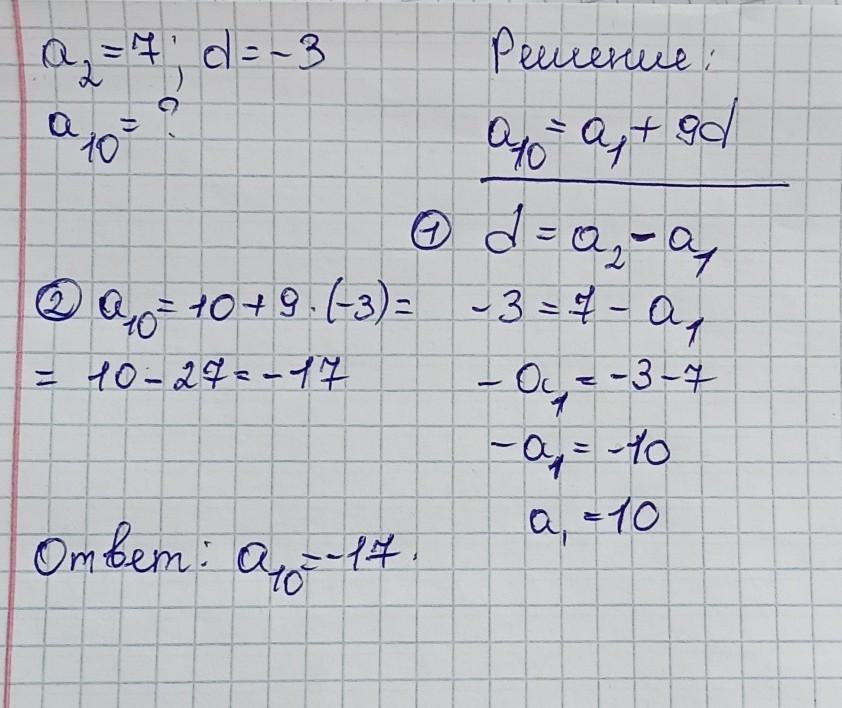 a₂ = 7; d = -3
a₁₀ = ?
Решение:
a₁₀ = a₁ + 9d
① d = a₂ - a₁
-3 = 7 - a₁
-a₁ = -3 - 7
-a₁ = -10
a₁ = 10
② a₁₀ = 10 + 9 · (-3) =
= 10 - 27 = -17
Ответ: a₁₀ = -17.